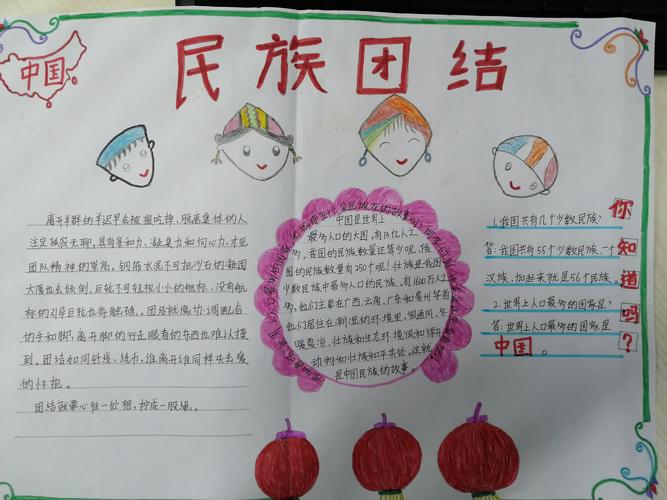 民族团结
中国
离开羊群的羊迟早会被狼吃掉，脱离集体的人
注定孤寂无聊，具有亲和力、凝集力和向心力，才见
团队精神的崇高，钢筋水泥不可把沙石的凝固
大厦也会倾倒，巨轮不可轻视小小的航标，没有航
标的引导巨轮也会触礁。团结就像协调配合
的手和脚，离开脚的行走眼看的东西也难以摸
到。团结如同针线，纸币，谁离开谁同样失去爱
的怀抱。
团结就要心往一处想，拧成一股绳。
中国是世界上
最多人口的大国，有13亿人之
多，我国的民族数量还算少呢，俄
国的民族数量有250个呢！壮族是我国
少数民族中最多人口的民族，有1600万人之
多，他们主要在广西、云南、广东和贵州等省
他们居住在潮湿的环境里，很通风，冬
暖夏凉，壮族和生态环境很和谐，
动物和壮族和平共处，这就
是中国民族的故事。
你知道吗？
1.我国共有几个少数民族？
答：我国共有55个少数民族，一个
汉族，加起来就是56个民族。
2.世界上人口最多的国家是？
答：世界上人口最多的国家是
中国。